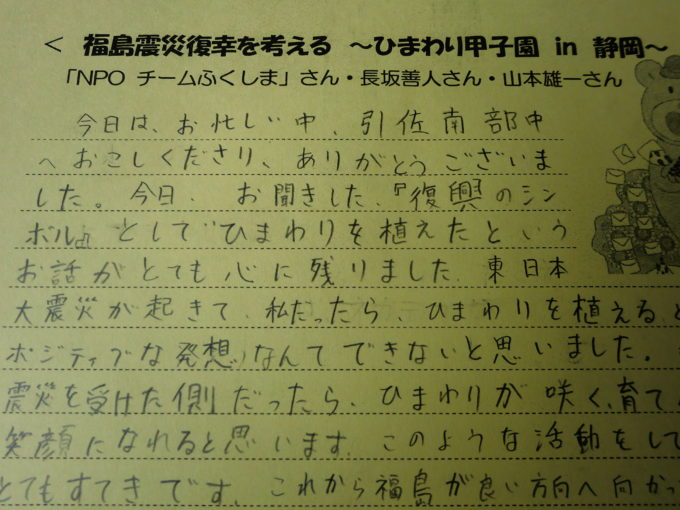 < 福島震災復幸を考える ～ひまわり甲子園 in 静岡～
「NPO チームふくしま」さん・長坂善人さん・山本雄一さん
今日は、お忙しい中、引佐南部中
へおこしくださり、ありがとうございま
した。今日、お聞きした、『復興のシン
ボル』として ひまわりを植えたという
お話がとても心に残りました。東日本
大震災が起きて、私だったら、ひまわりを植えると
ポジティブな発想なんてできないと思いました。
震災を受けた側だったら、ひまわりが咲く、育て
笑顔になれると思います。このような活動をして
とてもすてきです。これから福島が良い方向へ向かっ